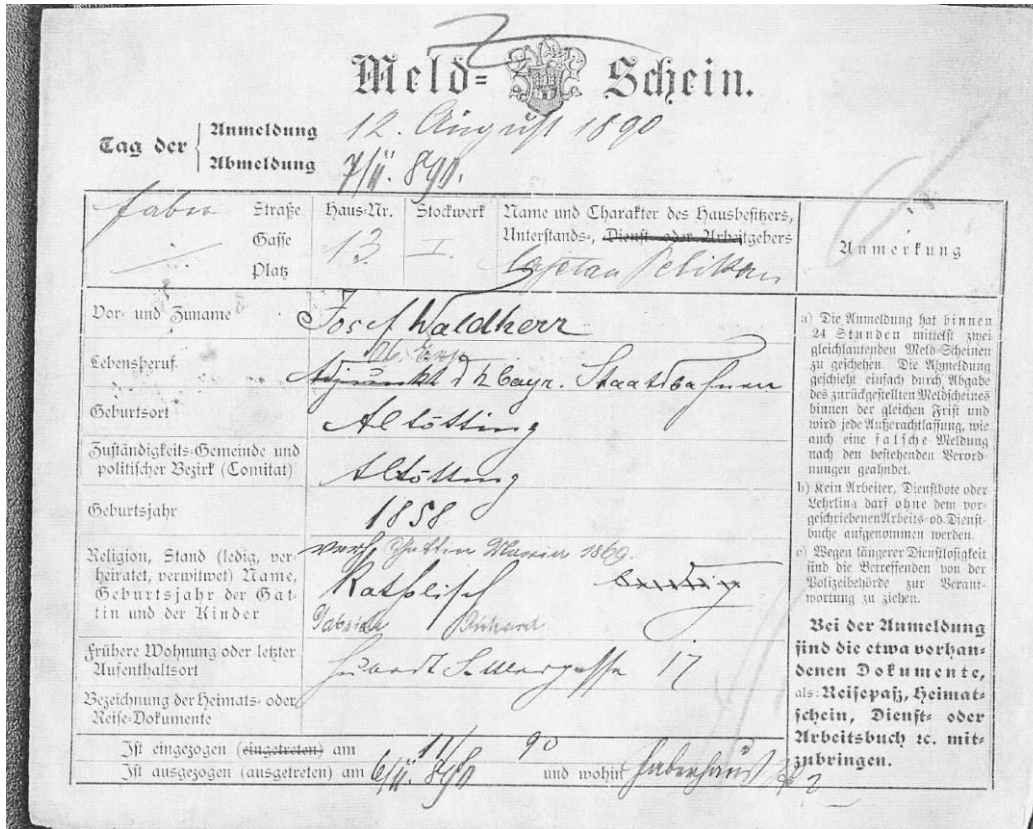 Meld= Schein.
Tag der
Anmeldung 12. August 1890
Abmeldung 7/II. 890.
Faber Straße
Gasse
Platz
Haus-Nr.
13
Stockwerk
I.
Name und Charakter des Hausbesitzers,
Unterstands-, Dienst- oder Arbeitgebers
Cajetan Pelikan
Anmerkung
Vor- und Zuname Josef Waldherr
Lebensberuf
Adjunkt d k bayr. Staatsbahnen
Geburtsort Altötting
Zuständigkeits-Gemeinde und
politischer Bezirk (Comitat) Altötting
Geburtsjahr 1858
Religion, Stand (ledig, ver-
heiratet, verwitwet) Name,
Geburtsjahr der Gat-
tin und der Kinder
verh. Gattin 1869.
Katholisch
Richard
Frühere Wohnung oder letzter
Aufenthaltsort 17
Bezeichnung der Heimats- oder
Reise-Dokumente
Ist eingezogen (eingetreten) am 11/ 90
Ist ausgezogen (ausgetreten) am 6/II. 890 und wohin Faberhaus
a) Die Anmeldung hat binnen
24 Stunden mittelst zwei
gleichlautenden Meld-Scheinen
zu geschehen. Die Abmeldung
geschieht einfach durch Abgabe
des zurückgestellten Meldscheines
binnen der gleichen Frist und
wird jede Außerachtlassung, wie
auch eine falsche Meldung
nach den bestehenden Verord-
nungen geahndet.
b) Kein Arbeiter, Dienstbote oder
Lehrling darf ohne dem vor-
geschriebenen Arbeits- od. Dienst-
buche aufgenommen werden.
c) Wegen längerer Dienstlosigkeit
sind die Betreffenden von der
Polizeibehörde zur Verant-
wortung zu ziehen.
Bei der Anmeldung
sind die etwa vorhan-
denen Dokumente,
als: Reisepaß, Heimat-
schein, Dienst- oder
Arbeitsbuch ꝛc. mit-
zubringen.